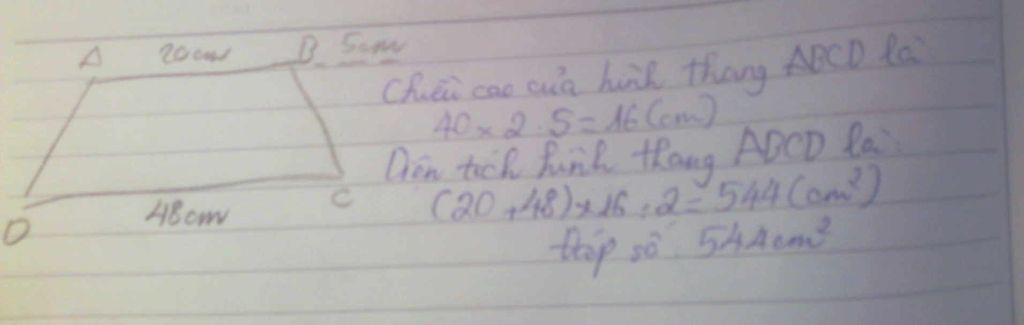 A 20cm B 5cm
Chiều cao của hình thang ABCD là
40 x 2 : 5 = 16 (cm)
Diện tích hình thang ABCD là:
(20 + 48) x 16 : 2 = 544 (cm²)
Đáp số : 544cm²
D 48cm C